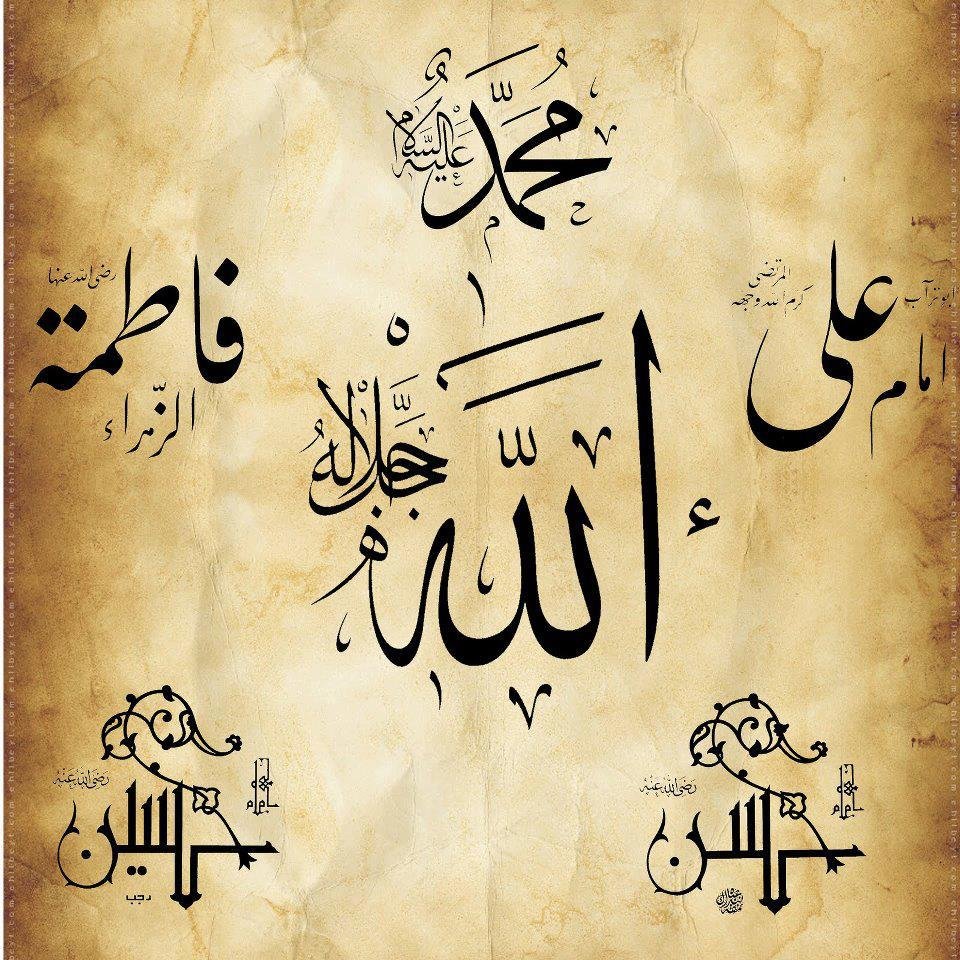 محمد
عليه السلام
ابو تراب
امام علي
المرتضى
كرم الله وجهه
فاطمة
رضى الله عنها
الزهراء
الله
جل جلاله
امام حسن
رَضَى اللهُ عَنْهُ
امام حسين
رَضَى اللهُ عَنْهُ
رجب